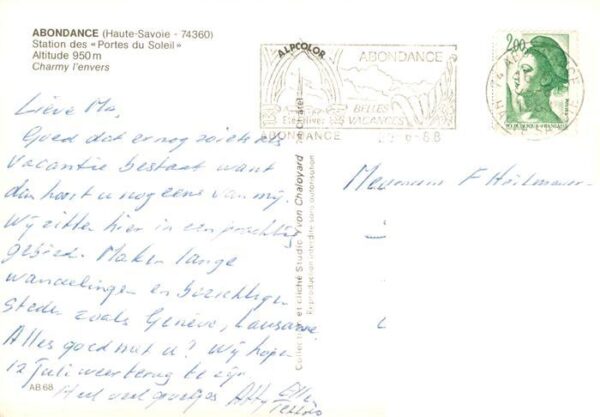 ABONDANCE (Haute-Savoie - 74360)
Station des «Portes du Soleil»
Altitude 950 m
Charmy l'envers
ALPCOLOR
ABONDANCE
BELLES
Eté Hiver VACANCES
ABONDANCE
88
2,00
Lieve Ma,
Goed dat er nog zoiets als
vacantie bestaat want
dan hoort u nog eens van mij.
Wij zitten hier in een prachtig
gebied. Maken lange
wandelingen en bezichtigen
steden zoals Genève, Lausanne.
Alles goed met u? Wij hopen
12 juli weer terug te zijn
Heel veel groetjes
Mevrouw F
Collection et cliché Studio Yvon Chaloyard
Reproduction interdite sans autorisation
AB.68